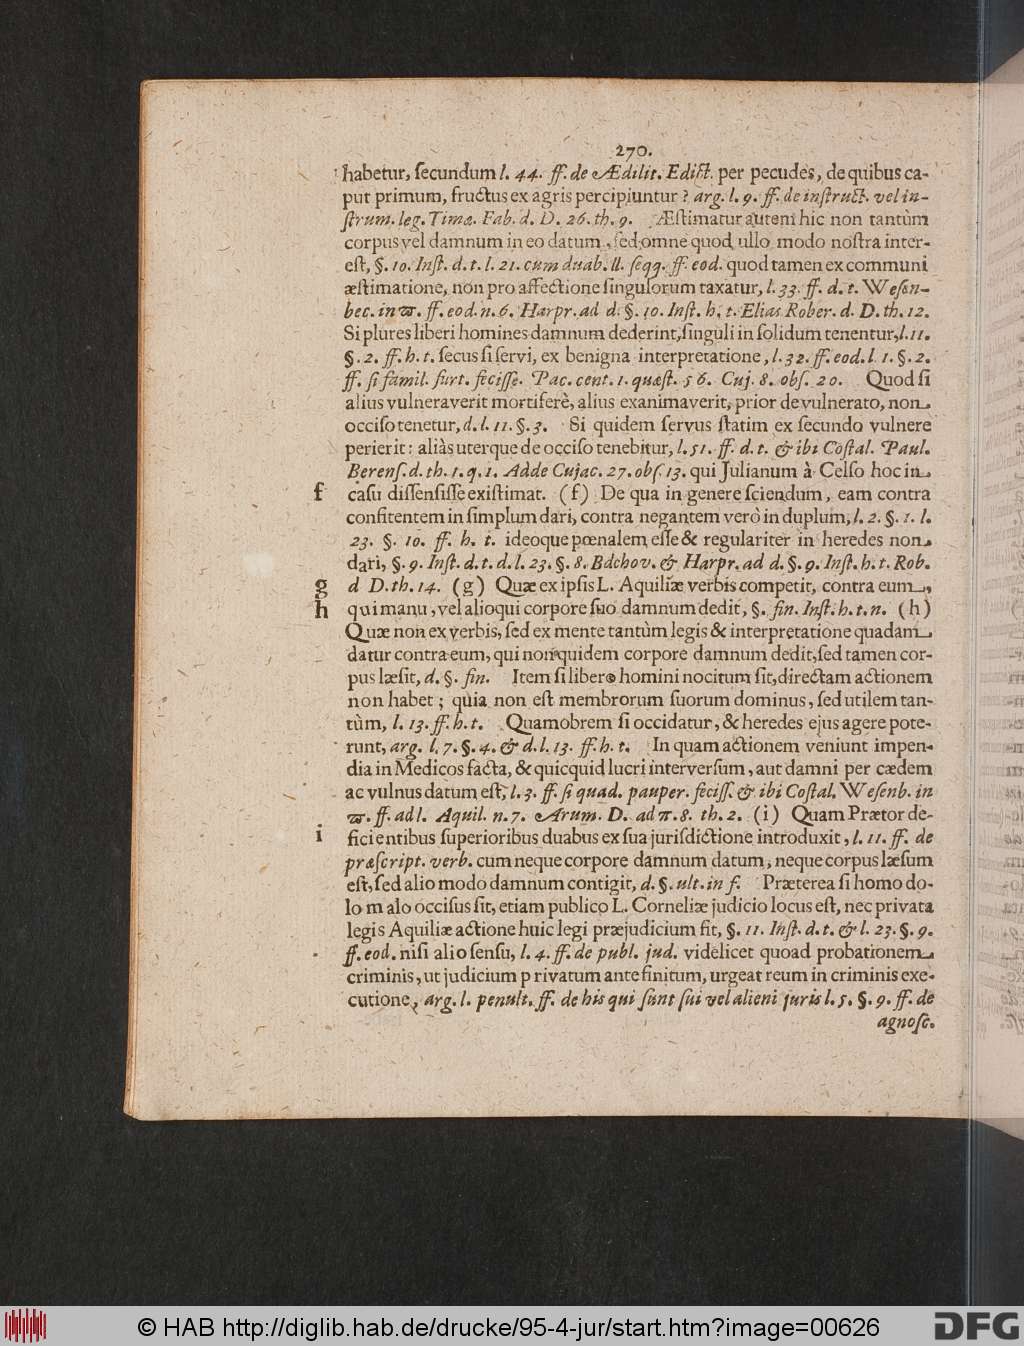 270.
habetur, ſecundum l. 44. ff. de Ædilit. Edict. per pecudes, de quibus ca-
put primum, fructus ex agris percipiuntur? arg. l. 9. ff. de inſtruct. vel in-
ſtrum. leg. Timæ. Fab. d. D. 26. th. 9. Æſtimatur autem hic non tantùm
corpus vel damnum in eo datum, ſed omne quod ullo modo noſtra inter-
eſt, §. 10. Inſt. d. t. l. 21. cum duab. ll. ſeqq. ff. eod. quod tamen ex communi
æſtimatione, non pro affectione ſingulorum taxatur, l. 33. ff. d. t. Weſen-
bec. in π. ff. eod. n. 6. Harpr. ad d. §. 10. Inſt. h. t. Elias Rober. d. D. th. 12.
Si plures liberi homines damnum dederint, ſinguli in ſolidum tenentur, l. 11.
§. 2. ff. h. t. ſecus ſi ſervi, ex benigna interpretatione, l. 32. ff. eod. l. 1. §. 2.
ff. ſi famil. furt. feciſſe. Pac. cent. 1. quæſt. 56. Cuj. 8. obſ. 20. Quod ſi
alius vulneraverit mortiferè, alius exanimaverit, prior de vulnerato, non
occiſo tenetur, d. l. 11. §. 3. Si quidem ſervus ſtatim ex ſecundo vulnere
perierit: aliàs uterque de occiſo tenebitur, l. 51. ff. d. t. & ibi Coſtal. Paul.
Berenſ. d. th. 1. q. 1. Adde Cujac. 27. obſ. 13. qui Julianum à Celſo hoc in
f caſu diſſenſiſſe exiſtimat. (f) De qua in genere ſciendum, eam contra
confitentem in ſimplum dari, contra negantem verò in duplum, l. 2. §. 1. l.
23. §. 10. ff. h. t. ideoque pœnalem eſſe & regulariter in heredes non
dari, §. 9. Inſt. d. t. d. l. 23. §. 8. Bachov. & Harpr. ad d. §. 9. Inſt. h. t. Rob.
g d D. th. 14. (g) Quæ ex ipſis L. Aquiliæ verbis competit, contra eum,
h qui manu, vel alioqui corpore ſuo damnum dedit, §. fin. Inſt. h. t. n. (h)
Quæ non ex verbis, ſed ex mente tantùm legis & interpretatione quadam
datur contra eum, qui non quidem corpore damnum dedit, ſed tamen cor-
pus læſit, d. §. fin. Item ſi libero homini nocitum ſit, directam actionem
non habet; quia non eſt membrorum ſuorum dominus, ſed utilem tan-
tùm, l. 13. ff. h. t. Quamobrem ſi occidatur, & heredes ejus agere pote-
runt, arg. l. 7. §. 4. & d. l. 13. ff. h. t. In quam actionem veniunt impen-
dia in Medicos facta, & quicquid lucri interverſum, aut damni per cædem
ac vulnus datum eſt, l. 3. ff. ſi quad. pauper. feciſſ. & ibi Coſtal. Weſenb. in
π. ff. ad l. Aquil. n. 7. Arum. D. ad π. 8. th. 2. (i) Quam Prætor de-
i ficientibus ſuperioribus duabus ex ſua jurisdictione introduxit, l. 11. ff. de
præſcript. verb. cum neque corpore damnum datum, neque corpus læſum
eſt, ſed alio modo damnum contigit, d. §. ult. in f. Præterea ſi homo do-
lo malo occiſus ſit, etiam publico L. Corneliæ judicio locus eſt, nec privata
legis Aquiliæ actione huic legi præjudicium fit, §. 11. Inſt. d. t. & l. 23. §. 9.
ff. eod. niſi alio ſenſu, l. 4. ff. de publ. jud. videlicet quoad probationem
criminis, ut judicium privatum ante finitum, urgeat reum in criminis exe-
cutione, arg. l. penult. ff. de his qui ſunt ſui vel alieni juris l. 5. §. 9. ff. de
agnoſc.
© HAB http://diglib.hab.de/drucke/95-4-jur/start.htm?image=00626
DFG